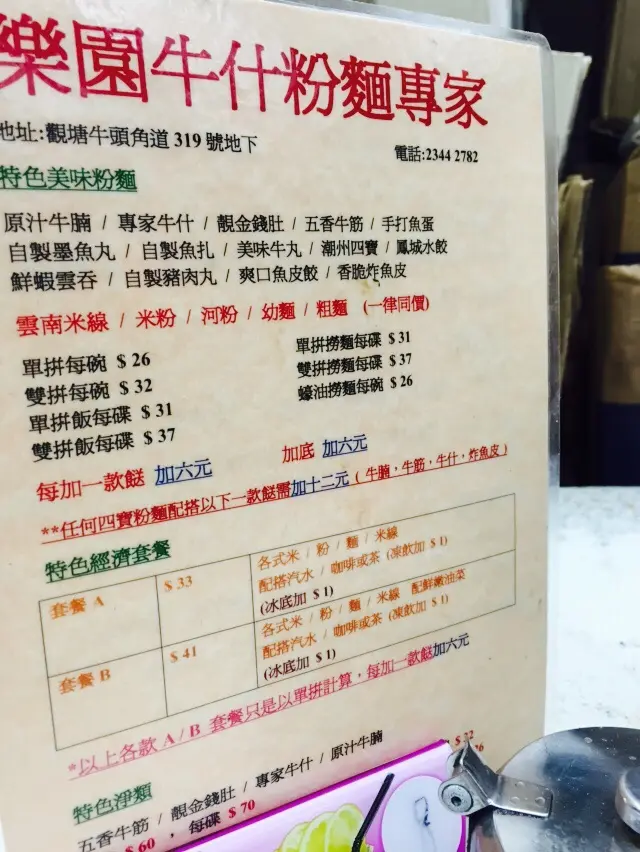 樂園牛什粉麵專家
地址:觀塘牛頭角道 319 號地下
電話:2344 2782
特色美味粉麵
原汁牛腩 / 專家牛什 / 靚金錢肚 / 五香牛筋 / 手打魚蛋
自製墨魚丸 / 自製魚扎 / 美味牛丸 / 潮州四寶 / 鳳城水餃
鮮蝦雲吞 / 自製豬肉丸 / 爽口魚皮餃 / 香脆炸魚皮
雲南米線 / 米粉 / 河粉 / 幼麵 / 粗麵 (一律同價)
單拼每碗 $ 26
雙拼每碗 $ 32
單拼飯每碟 $ 31
雙拼飯每碟 $ 37
單拼撈麵每碟 $ 31
雙拼撈麵每碟 $ 37
蠔油撈麵每碗 $ 26
每加一款餸 加六元
加底 加六元
**任何四寶粉麵配搭以下一款餸需加十二元 ( 牛腩,牛筋,牛什,炸魚皮 )
特色經濟套餐
套餐 A
$ 33
各式米 / 粉 / 麵 / 米線
配搭汽水 / 咖啡或茶 (凍飲加 $ 1)
(冰底加 $ 1)
套餐 B
$ 41
各式米 / 粉 / 麵 / 米線 配鮮嫩油菜
配搭汽水 / 咖啡或茶 (凍飲加 $ 1)
(冰底加 $ 1)
*以上各款 A / B 套餐只是以單拼計算,每加一款餸加六元
特色淨類
五香牛筋 / 靚金錢肚 / 專家牛什 / 原汁牛腩
$ 60 , 每碟 $ 70